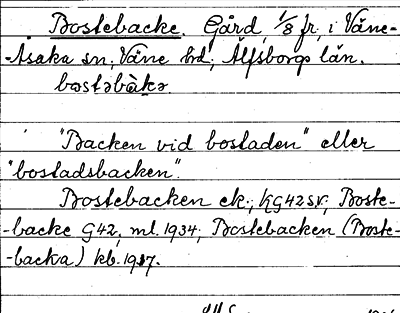 Bostebacke. Gård, 1/8 fr, i Väne-
-Åsaka sn, Väne hd, Älfsborgs län.
bostəbàkə.
"Backen vid bostaden" eller
"bostadsbacken".
Bostebacken ek.; KG42sv; Boste-
-backe G42, ml. 1934; Bostebacken (Boste-
-backa) kb. 1917.